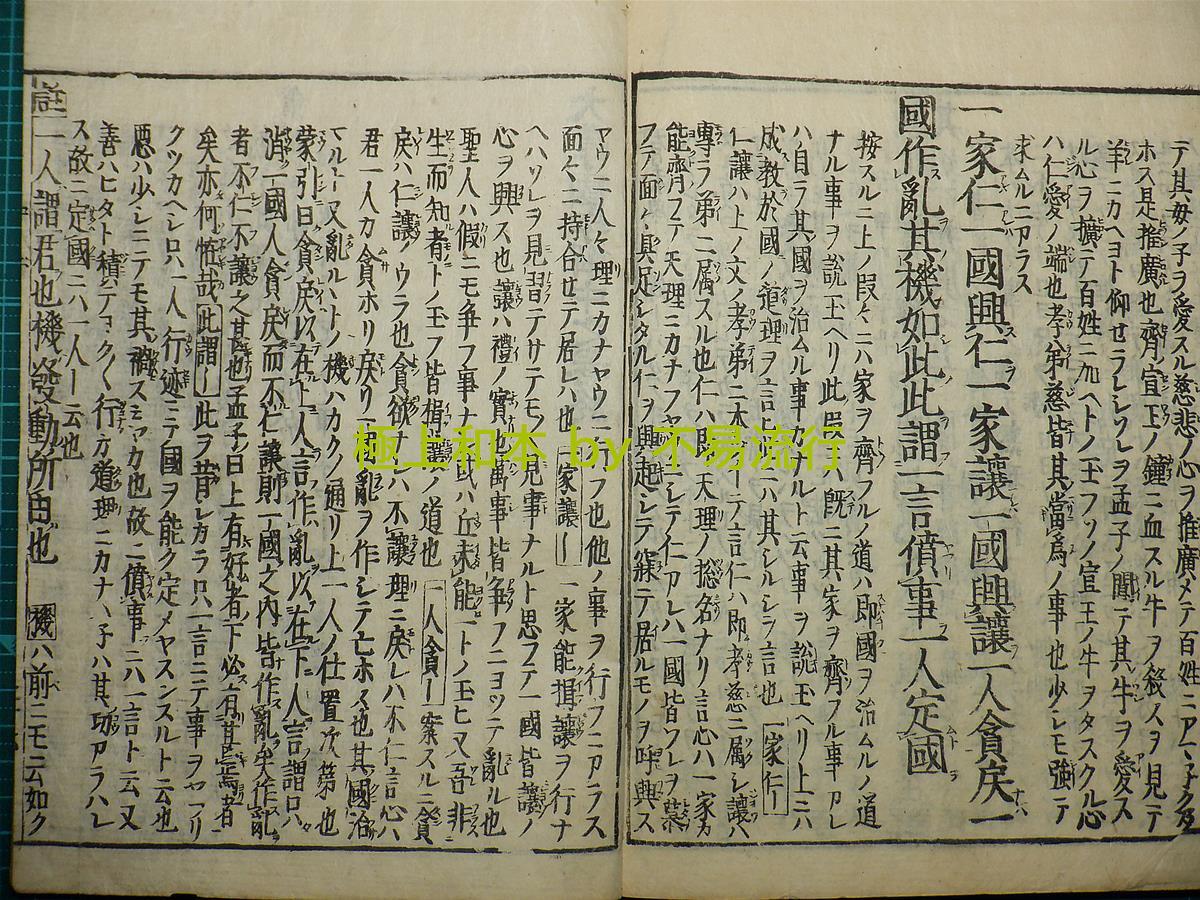 テ其母ノ子ヲ愛スル慈悲ノ心ヲ推廣メテ百姓ニ
ホス是推廣也齊宣王ノ鐘ニ血スル牛ヲ殺スヲ見テ
羊ニカヘヨト仰セラレシヲ孟子ノ聞テ其牛ヲ愛ス
ル心ヲ擴テ百姓ニ加ヘヨトノ玉フソノ宣王ノ牛ヲタスクル心
ハ仁愛ノ端也孝弟慈皆其當爲ノ事也少シモ強テ
求ムルニアラス
一家仁一國興仁一家讓一國興讓一人貪戾一
國作亂其機如此此謂一言僨事一人定國
按スルニ上ノ段々ニハ家ヲ齊フルノ道ハ即國ヲ治ムルノ道
ナル事ヲ説玉ヘリ此段ハ既ニ其家ヲ齊フル事アレ
ハ自ラ其國ヲ治ムル事カナルト云事ヲ説玉ヘリ上ニハ
成教於國ノ道理ヲ言此ニハ其シルシヲ言也 一家仁ー
仁讓ハ上ノ文ノ孝弟ニ本ーテ言仁ハ即孝慈ニ属シ讓ハ
專ラ弟ニ属スル也仁ハ即天理ノ惣名ナリ言心ハ一家
能齊フテ天理ニカナフヤウニシテ仁アレハ一國皆ソレヲ慕
フテ面々興起シテ寐テ居ルモノヲ呼興ス
ヤウニ人々理ニカナヤウニ行フ也他ノ事ヲ行フニアラス
面々ニ持合セテ居レハ也 一家讓ー 一家能揖讓ヲ行ナ
ヘハソレヲ見習テサテモ見事ナルト思フテ一國皆讓ノ
心ヲ興ス也讓ハ禮ノ實也萬事皆争フニヨツテ亂ル也
聖人ハ假ニモ争フ事ナ 或ハ丘未能一トノ玉ヒ又吾非
生而知者トノ玉フ皆揖讓ノ道也 一人貪ー 案スルニ貪
戾ハ仁讓ノウラ也貪欲ナレハ不讓理ニ戾レハ不仁言心ハ
君一人カ貪ホリ戾リ一國亂ヲ作シテ亡ホス也其國治
マルト又亂ルハトノ機ハカクノ通リ上一人ノ仕置次第也
蒙引曰貪戾以在上人言作亂以在下人言謂ロハ
消一國人貪戾而不仁讓則一國之内皆作亂矣作亂
者不仁不讓之甚也孟子曰上有好者下必有甚焉者
矣亦何怪哉 此謂ー 此ヲ昔シカラロハ一言ニテ事ヲヤフリ
クツカヘシロハ一人行迹ニテ國ヲ能ク定メヤスンスルト云也
惡ハ少シニテモ其 スミヤカ也故ニ僨事ニハ一言ト云又
善ハヒタト積テヨク行方道理ニカナハ子ハ其功アラハレ
ス故ニ定國ニハ一人ー云也
註 一人謂君也機發動所由也 機ハ前ニモ云如ク
極上和本 by 不易流行